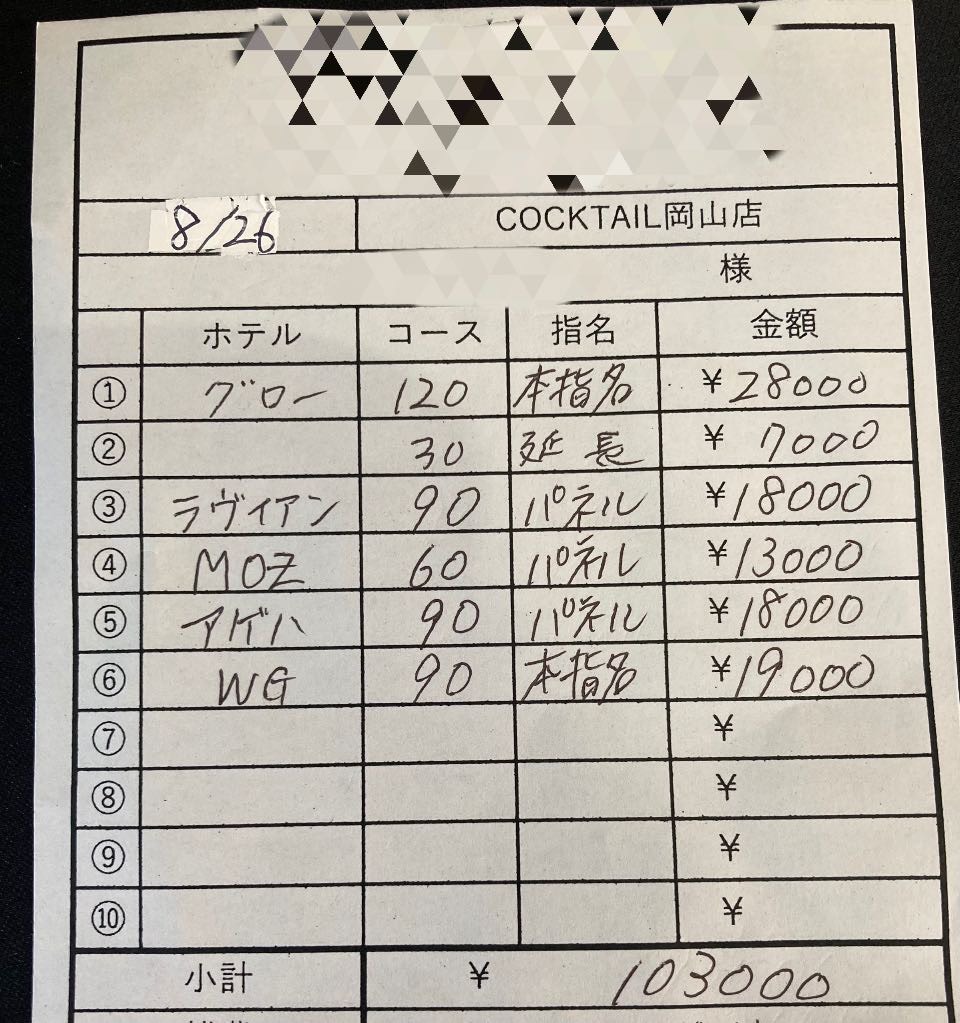 8/26 COCKTAIL岡山店
様
ホテル コース 指名 金額
① グロー 120 本指名 ¥28000
② 30 延長 ¥7000
③ ラヴィアン 90 パネル ¥18000
④ MOZ 60 パネル ¥13000
⑤ アゲハ 90 パネル ¥18000
⑥ WG 90 本指名 ¥19000
⑦ ¥
⑧ ¥
⑨ ¥
⑩ ¥
小計 ¥ 103000